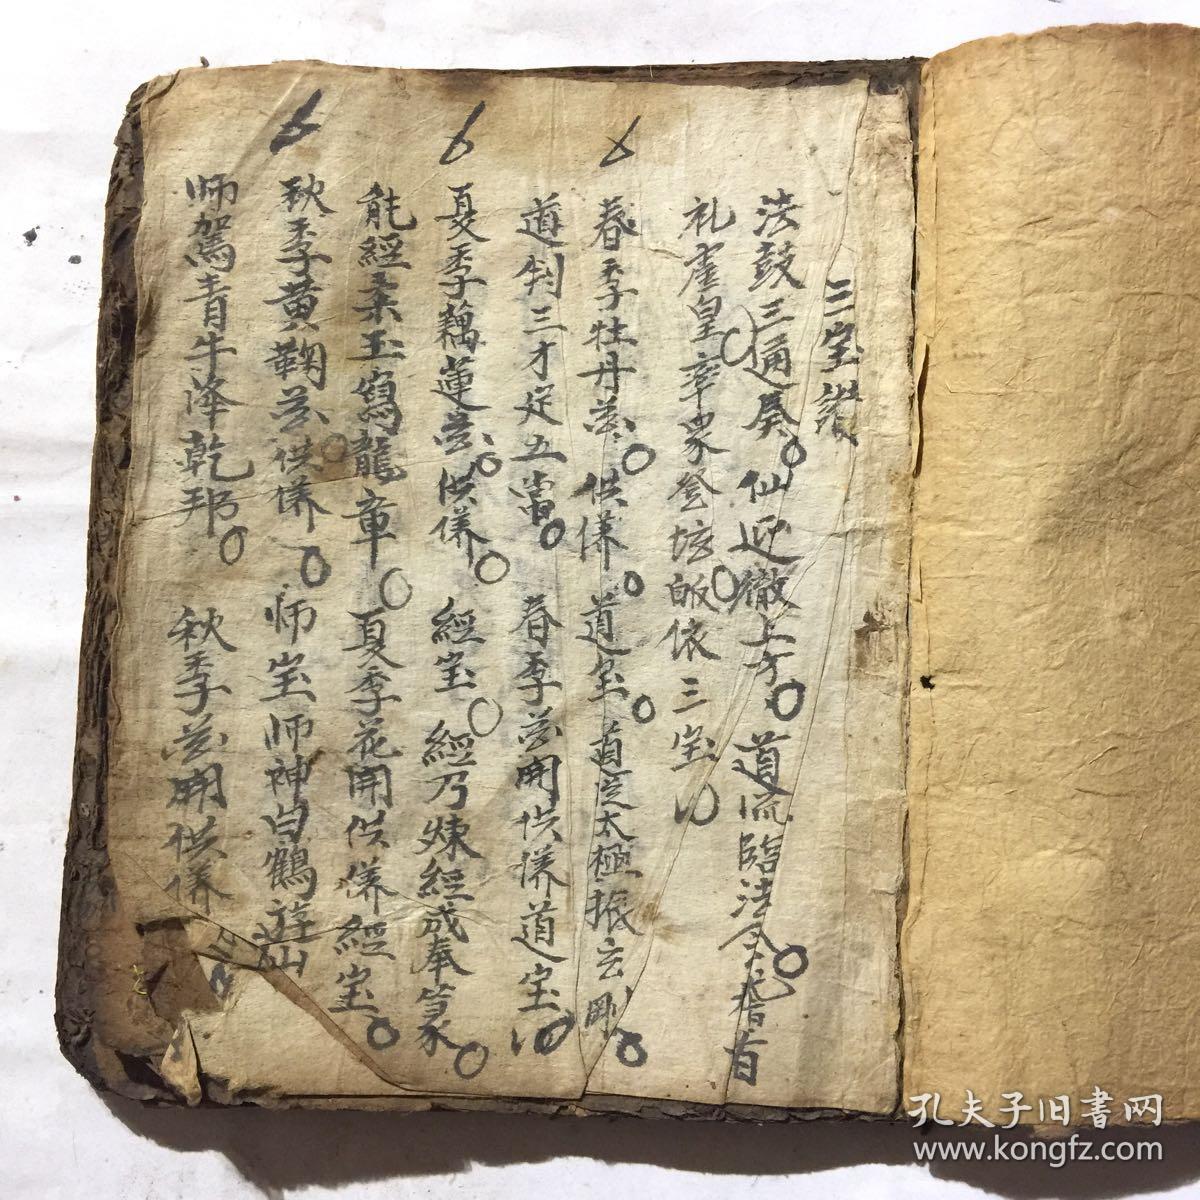 三宝讚
法鼓三通奏 仙迎徹上方 道流臨法今 稽首
礼虚皇率众登坛皈依三宝
春季牡丹花 供养 道宝 道是太極振玄剛
道判三才定五常 春季花開供养道宝
夏季藕蓮花 供养 經宝 經乃煉經成奉篆
能經柔玉寫龍章 夏季花開供养經宝
秋季黄鞠花供养 师宝师神白鶴遊仙
师駕青牛降乾邦 秋季花開供养
孔夫子旧書网
www.kongfz.com